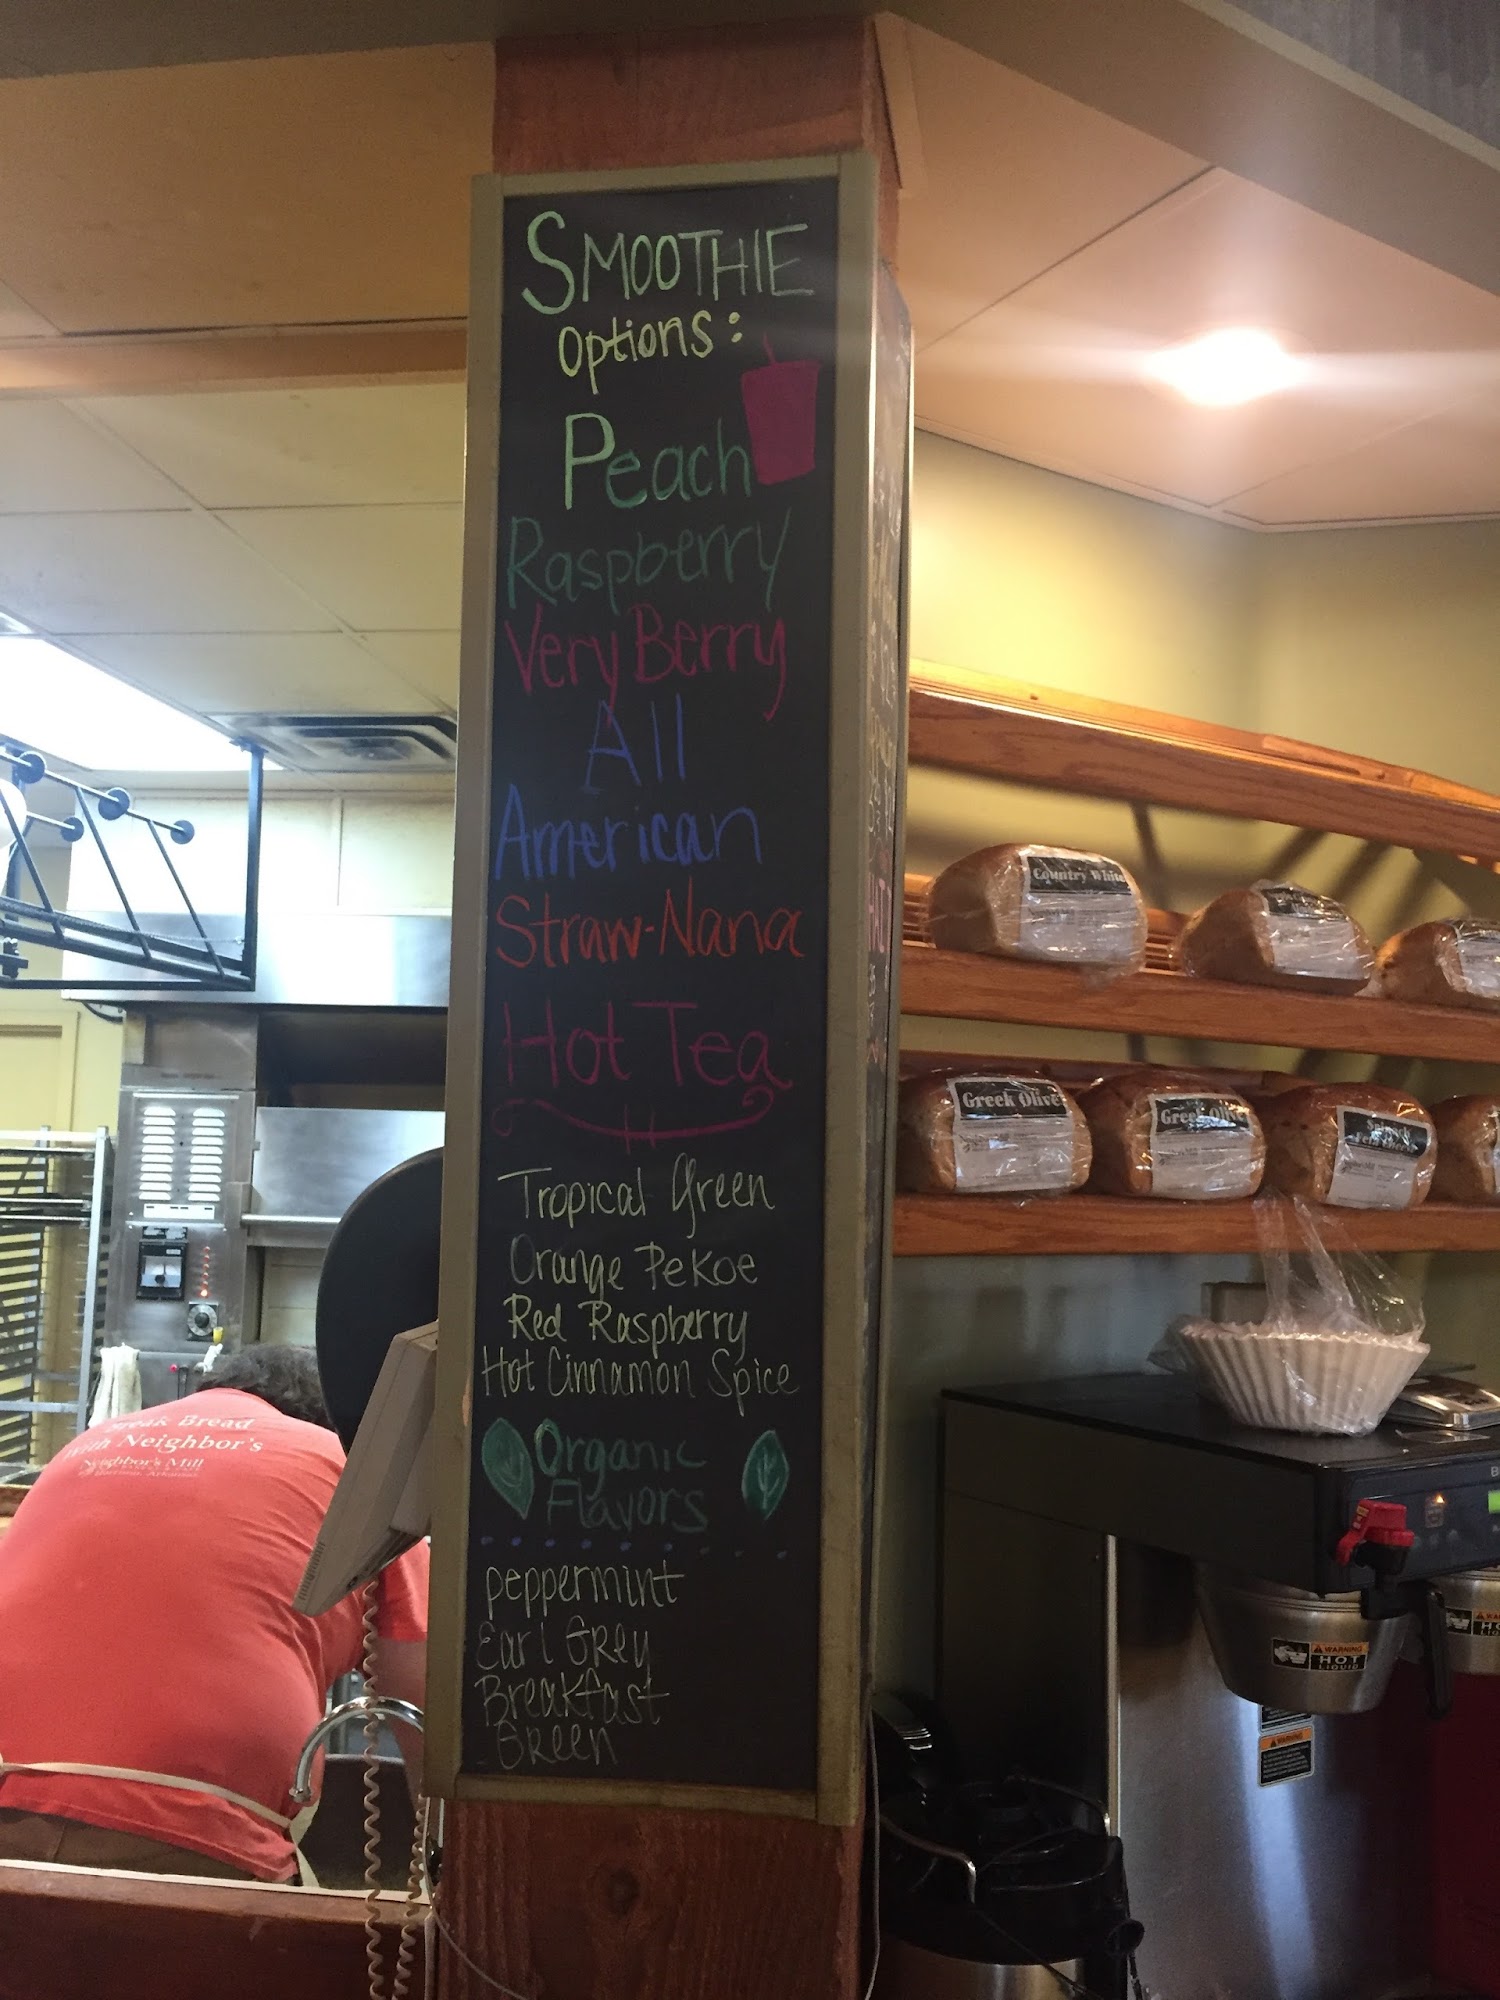 SMOOTHIE
options:
Peach
Raspberry
Very Berry
All
American
Straw-Nana
Hot Tea
Tropical Green
Orange Pekoe
Red Raspberry
Hot Cinnamon Spice
Organic
Flavors
peppermint
Earl Grey
Breakfast
Green
Break Bread
With Neighbor's
Neighbor's Mill
Country White
Greek Olive
Greek Olive
WARNING
HOT
LIQUID
WARNING